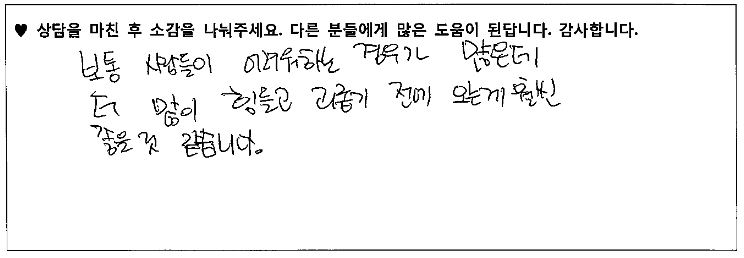 ♥ 상담을 마친 후 소감을 나눠주세요. 다른 분들에게 많은 도움이 된답니다. 감사합니다.
보통 사람들이 어려워하는 경우가 많은데
더 많이 힘들고 괴롭기 전에 오는게 훨씬
좋은 것 같습니다.